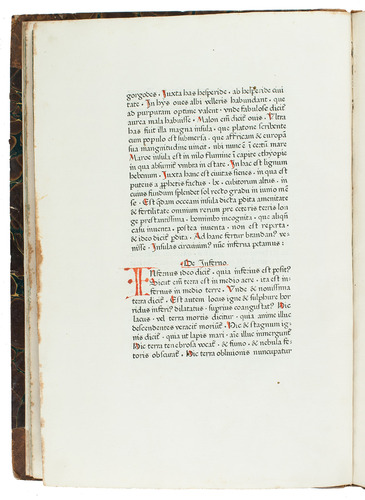 gorgodes . Juxta has hesperide . ab hesperide civi
tate . In hys oves albi velleris habundant . que
ad purpuram optime valent . vnde fabulose dicit̃
aurea mala habuisse . Malon em̃ dicit̃ ovis . Vltra
has fuit illa magna insula . que platone scribente
cum populo est submersa . que affricam & europã
sua mangnitudine vincit . ubi nunc est
Maroe insula est in nilo flumine
in estate . In hac est lignum
hebenum . Juxta hanc est civitas sienes . in qua est
puteus a factus . lx . cubitorum altus . in
cuius fundum splendet sol recto gradu in iunio mẽ
se . Est occeani insula dicta pdita amenitate
& fertilitate omnium rerum pre ceteris terris lon
ge prestantissima . hominibo incognita . que aliqñ
casu inventa . postea inventa . non est reperta .
& ideo dicit̃ pdita . Ad hanc fertur brandanũ ve
nisse . Insulas circuivim⁹ nũc inferna petamus :
De Inferno.
INfernus ideo dicit̃ . quia inferius est posit⁹
Sicut em̃ terra est in medio aere . ita est in
fernus in medio terre . Vnde & novissima
terra dicit̃ . Est autem locus igne & sulphure hor
ridus inferi⁹ dilatatus . superius coangustat⁹ Hic
lacus . vel terra mortis dicitur . quia anime illuc
descendentes veracit̃ moriunt̃ . Hic & stagnum ig
nis dicit̃ . quia ut lapis mari . aĩe illuc immergunt̃
Hic terra tenebrosa vocat̃ . & fumo & nebula fe
toris obscurat̃ . Hic terra oblivionis nuncupatur